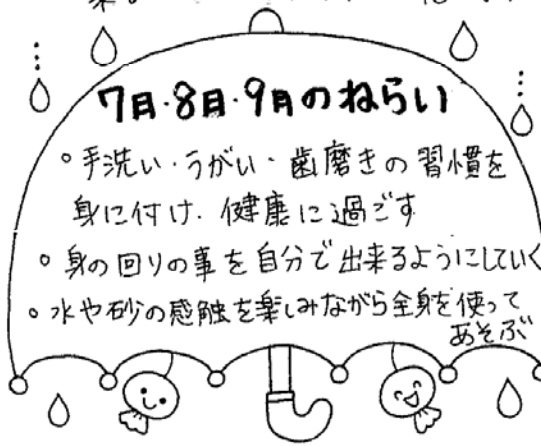 7月・8月・9月のねらい
○手洗い・うがい・歯磨きの習慣を
身に付け、健康に過ごす
○身の回りの事を自分で出来るようにしていく
○水や砂の感触を楽しみながら全身を使って
あそぶ